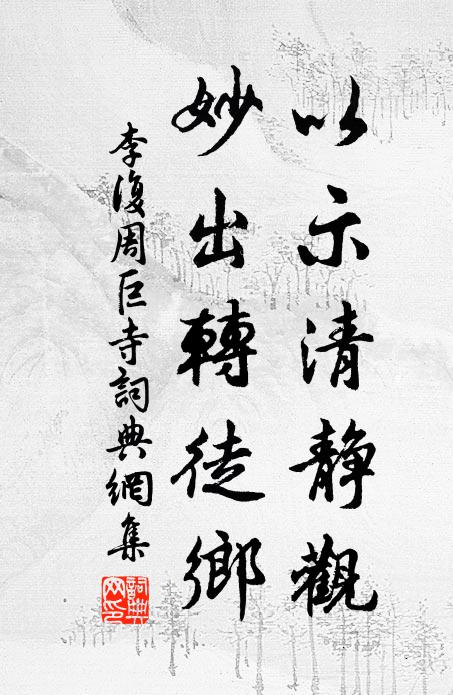 以示清靜觀
妙出轉徒鄉
李復周巨寺詞典網集
詞典